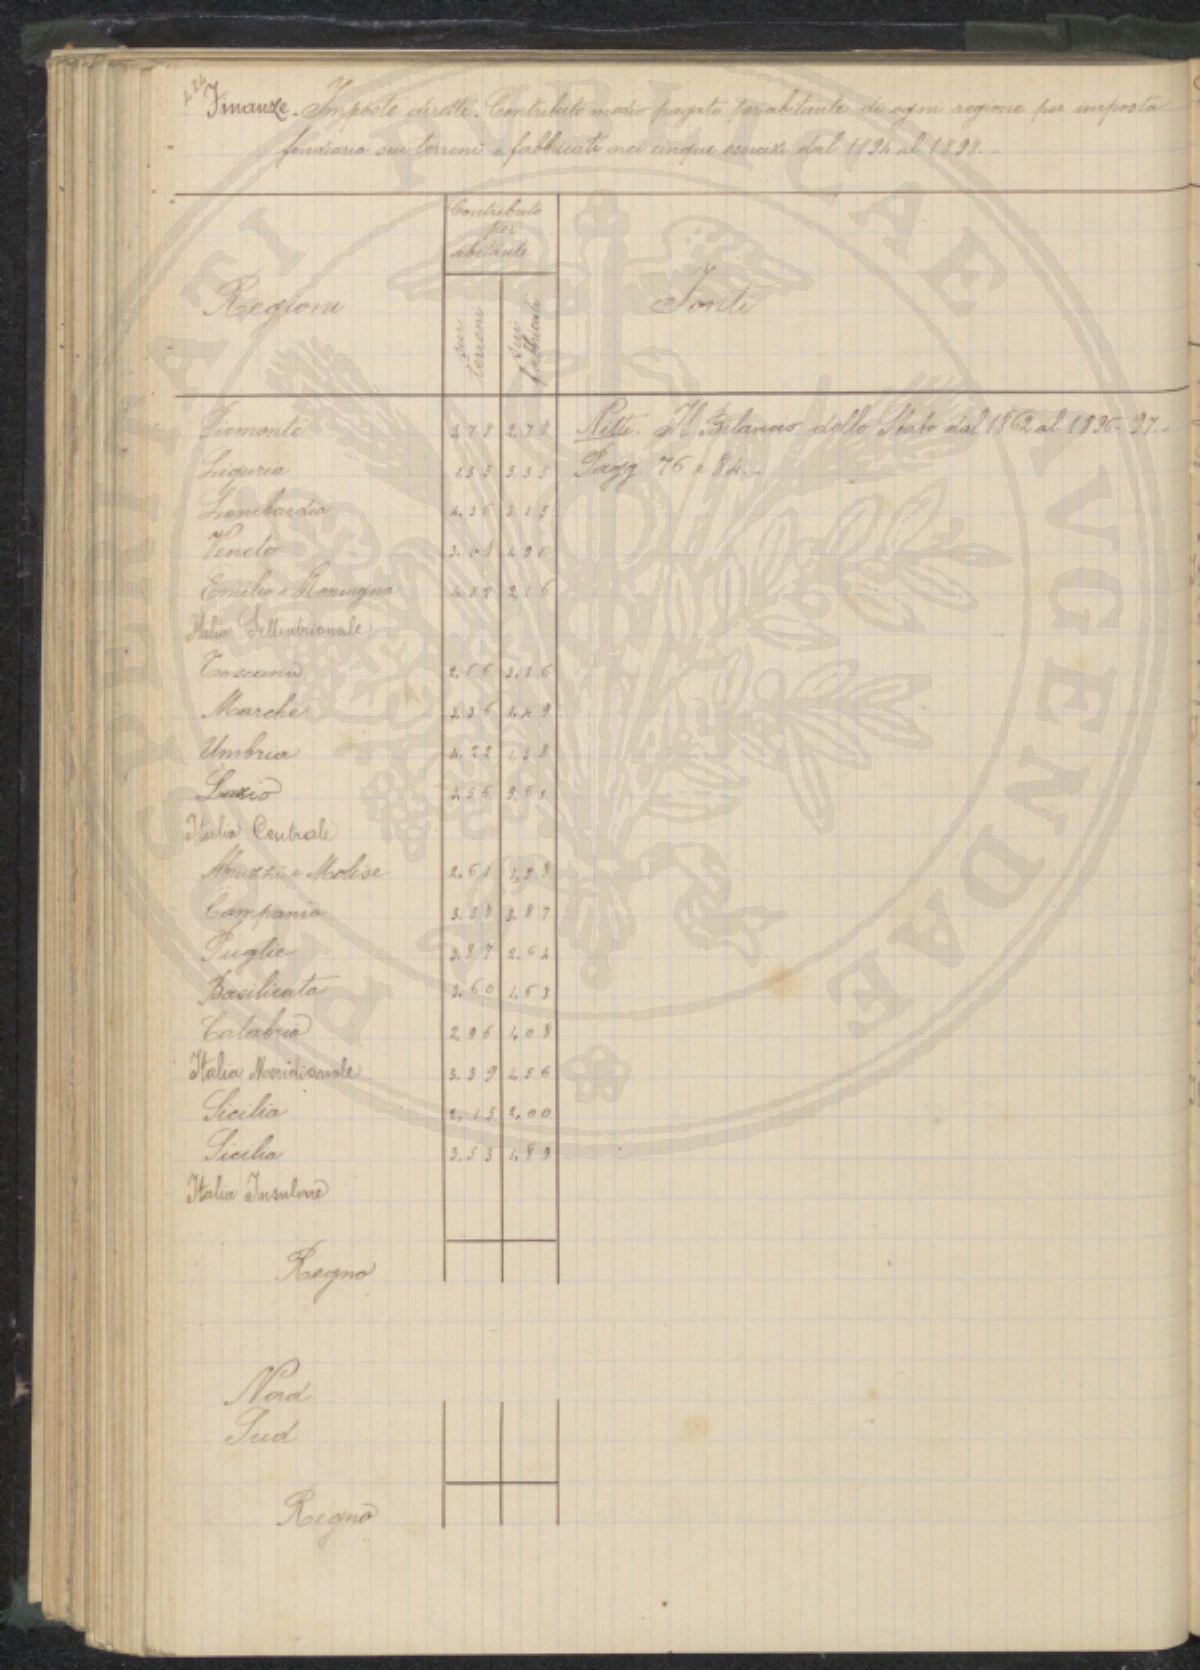 Finanze. Imposte dirette. Contributo medio pagato per abitante di ogni regione per imposta
fondiaria sui terreni e fabbricati nei cinque esercizi dal 1894 al 1898.
Contributo
per
abitante
Regioni
sui terreni
sui fabbricati
Fonti
Piemonte 4.78 2.78 Nitti. Il Bilancio dello Stato dal 1862 al 1896-97.
Liguria 5.35 Pagg. 76 e 84.
Lombardia 4.36
Veneto
Emilia e Romagna 2.16
Italia Settentrionale
Toscana 2.66 3.16
Marche
Umbria 4.22
Lazio 4.56
Italia Centrale
Abruzzi e Molise 2.61
Campania 3.58 3.87
Puglie 3.87 2.64
Basilicata 3.60 1.63
Calabria 2.96 1.08
Italia Meridionale 3.39 2.56
Sicilia 2.15 2.00
Sicilia 3.53 1.89
Italia Insulare
Regno
Nord
Sud
Regno
PROSPERITATI PVBLICAE AVGENDAE